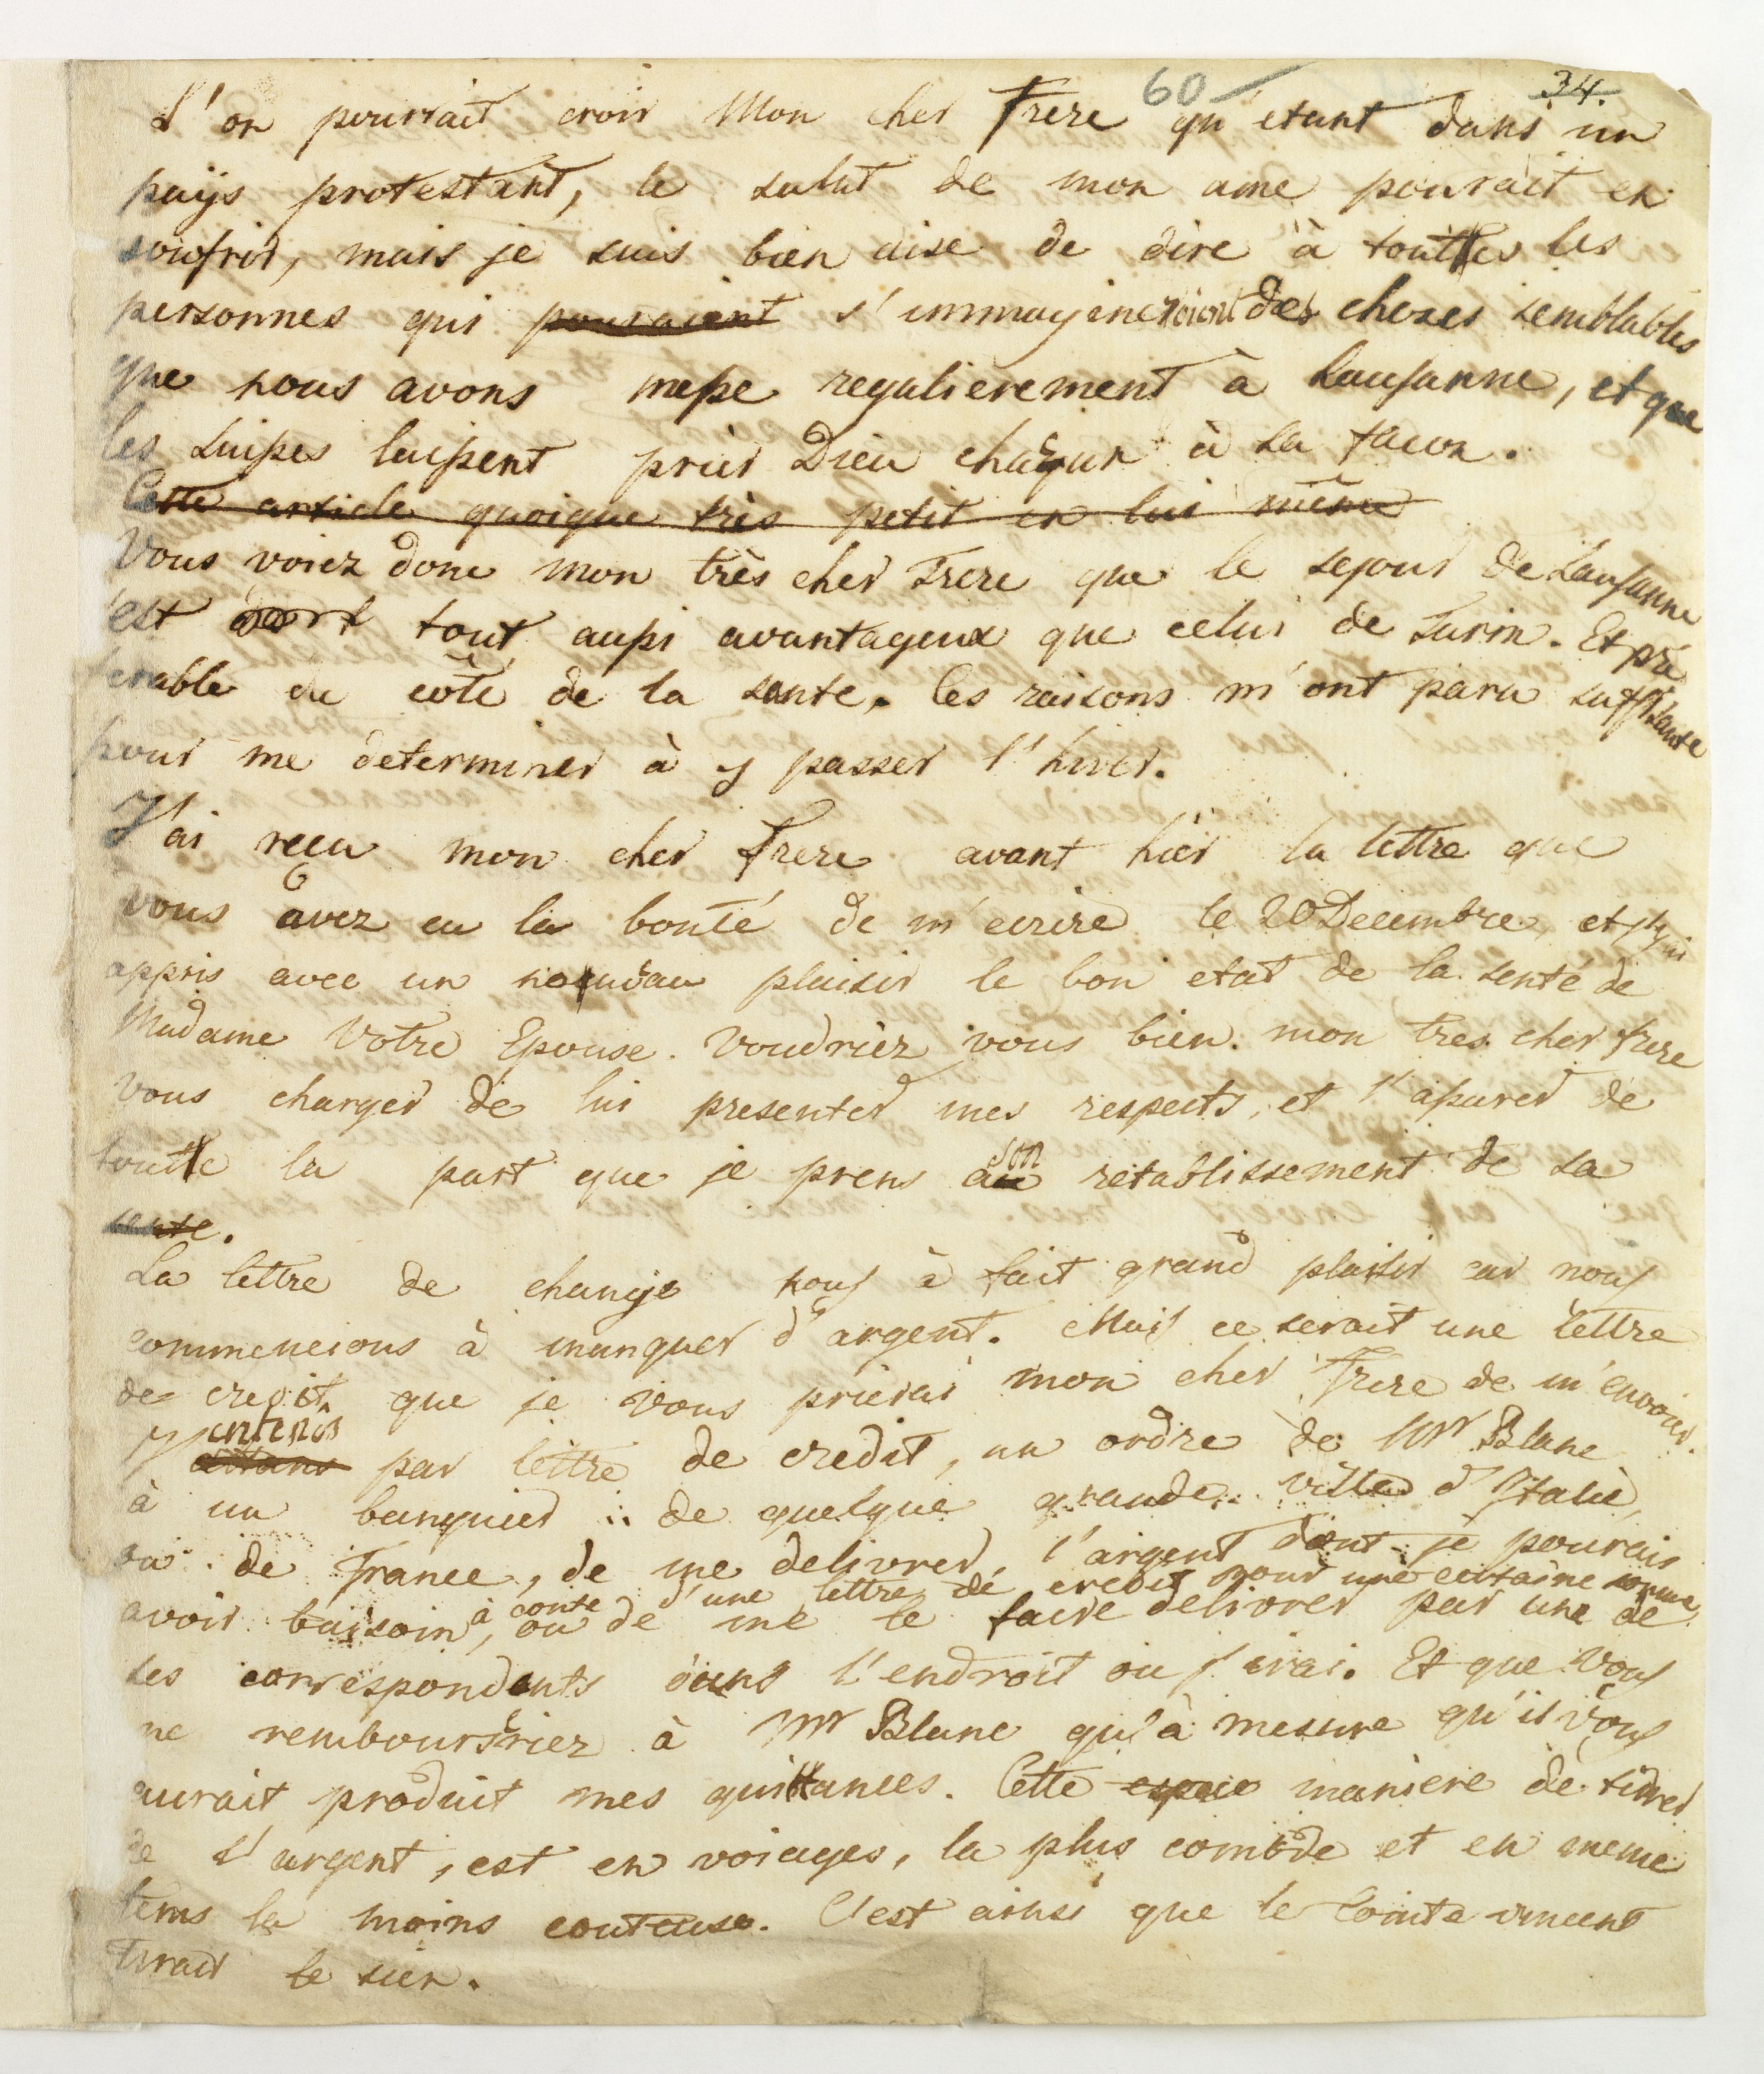 60 34.
L'on pourrait croir Mon cher Frere qu'etant dans un
païs protestant, le salut de mon ame pourait en
soufrir, mais je suis bien aise de dire à touttes les
personnes qui pouraient s'immagineroient des choses semblables
que nous avons messe regulierement à Lausanne, et que
les Suisses laissent prier Dieu chaqun à sa facon.
Cette article quoique très petit en lui même
Vous voiez donc mon très cher Frere que le sejour de Lausanne
est tout aussi avantageux que celui de Turin. Et pré
ferable du côté de la sante. Ces raisons m'ont paru suffisante
pour me determiner à y passer l'hiver.
J'ai reçu mon cher Frere avant hier la lettre que
vous avez eu la bonté de m'ecrire le 20 Decembre, et j'y ai
appris avec un nouveau plaisir le bon etat de la senté de
Madame Votre Epouse. Voudriez vous bien mon tres cher frere
vous charger de lui presenter mes respects, et l'assurer de
toutte la part que je prens au son retablissement de sa
sente.
La lettre de change nous à fait grand plaisir car nous
commencions à manquer d'argent. Mais ce serait une lettre
de credit que je vous prierai mon cher Frere de m'envoier.
J'entens par lettre de credit, un ordre de Mr Blanc
à un banquier de quelque grande ville d'Italie,
ou de France, de me delivrer, l'argent dont je pourais
à conte d'une lettre de credit pour une certaine somme,
avoir baisoin, ou de me le faire delivrer par une de
ses correspondents dans l'endroit ou j'irai. Et que vous
ne rembourseriez à Mr Blanc qu'à mesure qu'il vous
aurait produit mes quittances. Cette espece maniere de tirrer
de l'argent, est en voiages, la plus comode et en meme
tems la moins couteuse. C'est ainsi que le Comte vincent
tirait le sien.